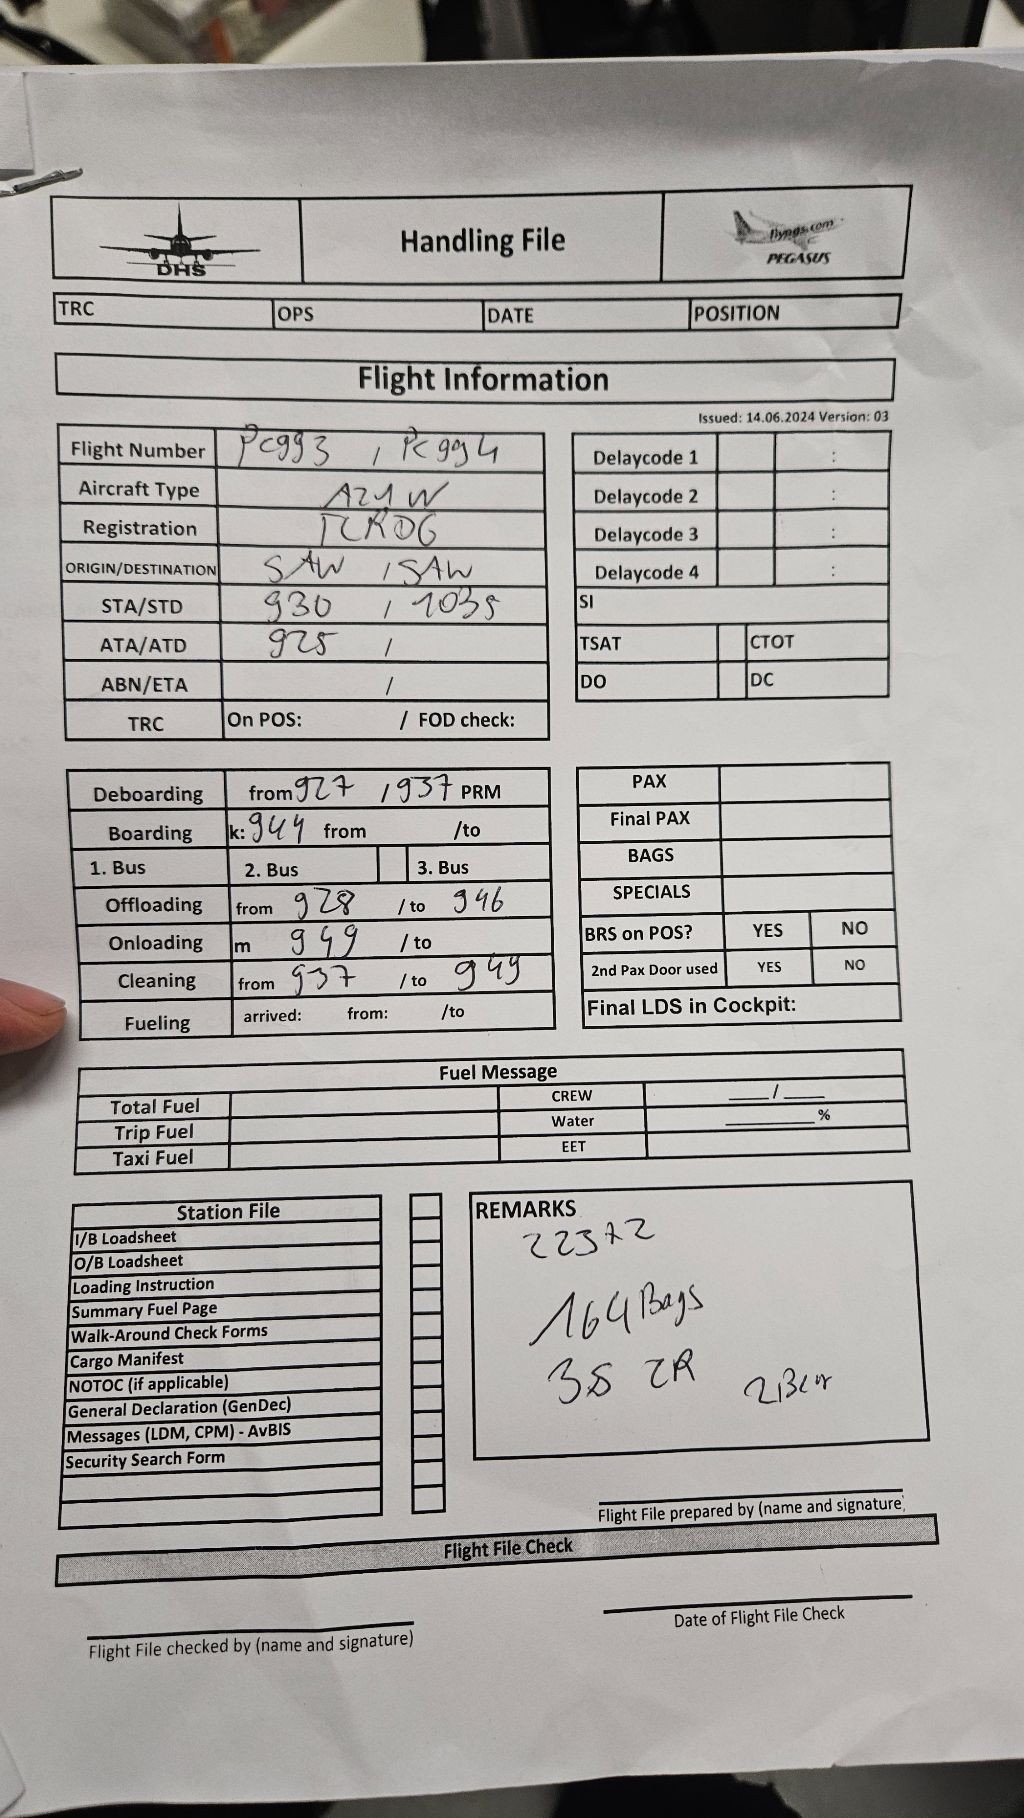 DHS
Handling File
flypgs.com
PEGASUS
TRC OPS DATE POSITION
Flight Information
Issued: 14.06.2024 Version: 03
Flight Number PC993 / PC994
Aircraft Type A21W
Registration TCRDG
ORIGIN/DESTINATION SAW / SAW
STA/STD 930 / 1035
ATA/ATD 925 /
ABN/ETA /
TRC On POS: / FOD check:
Delaycode 1 :
Delaycode 2 :
Delaycode 3 :
Delaycode 4 :
SI
TSAT CTOT
DO DC
Deboarding from 927 / 937 PRM
Boarding k: 944 from /to
1. Bus 2. Bus 3. Bus
Offloading from 928 / to 946
Onloading m 949 / to
Cleaning from 937 / to 949
Fueling arrived: from: /to
PAX
Final PAX
BAGS
SPECIALS
BRS on POS? YES NO
2nd Pax Door used YES NO
Final LDS in Cockpit:
Fuel Message
Total Fuel CREW ___/___
Trip Fuel Water ______%
Taxi Fuel EET
Station File
I/B Loadsheet
O/B Loadsheet
Loading Instruction
Summary Fuel Page
Walk-Around Check Forms
Cargo Manifest
NOTOC (if applicable)
General Declaration (GenDec)
Messages (LDM, CPM) - AvBIS
Security Search Form
REMARKS
223+2
164 Bags
ZR
Flight File prepared by (name and signature)
Flight File Check
Flight File checked by (name and signature)
Date of Flight File Check